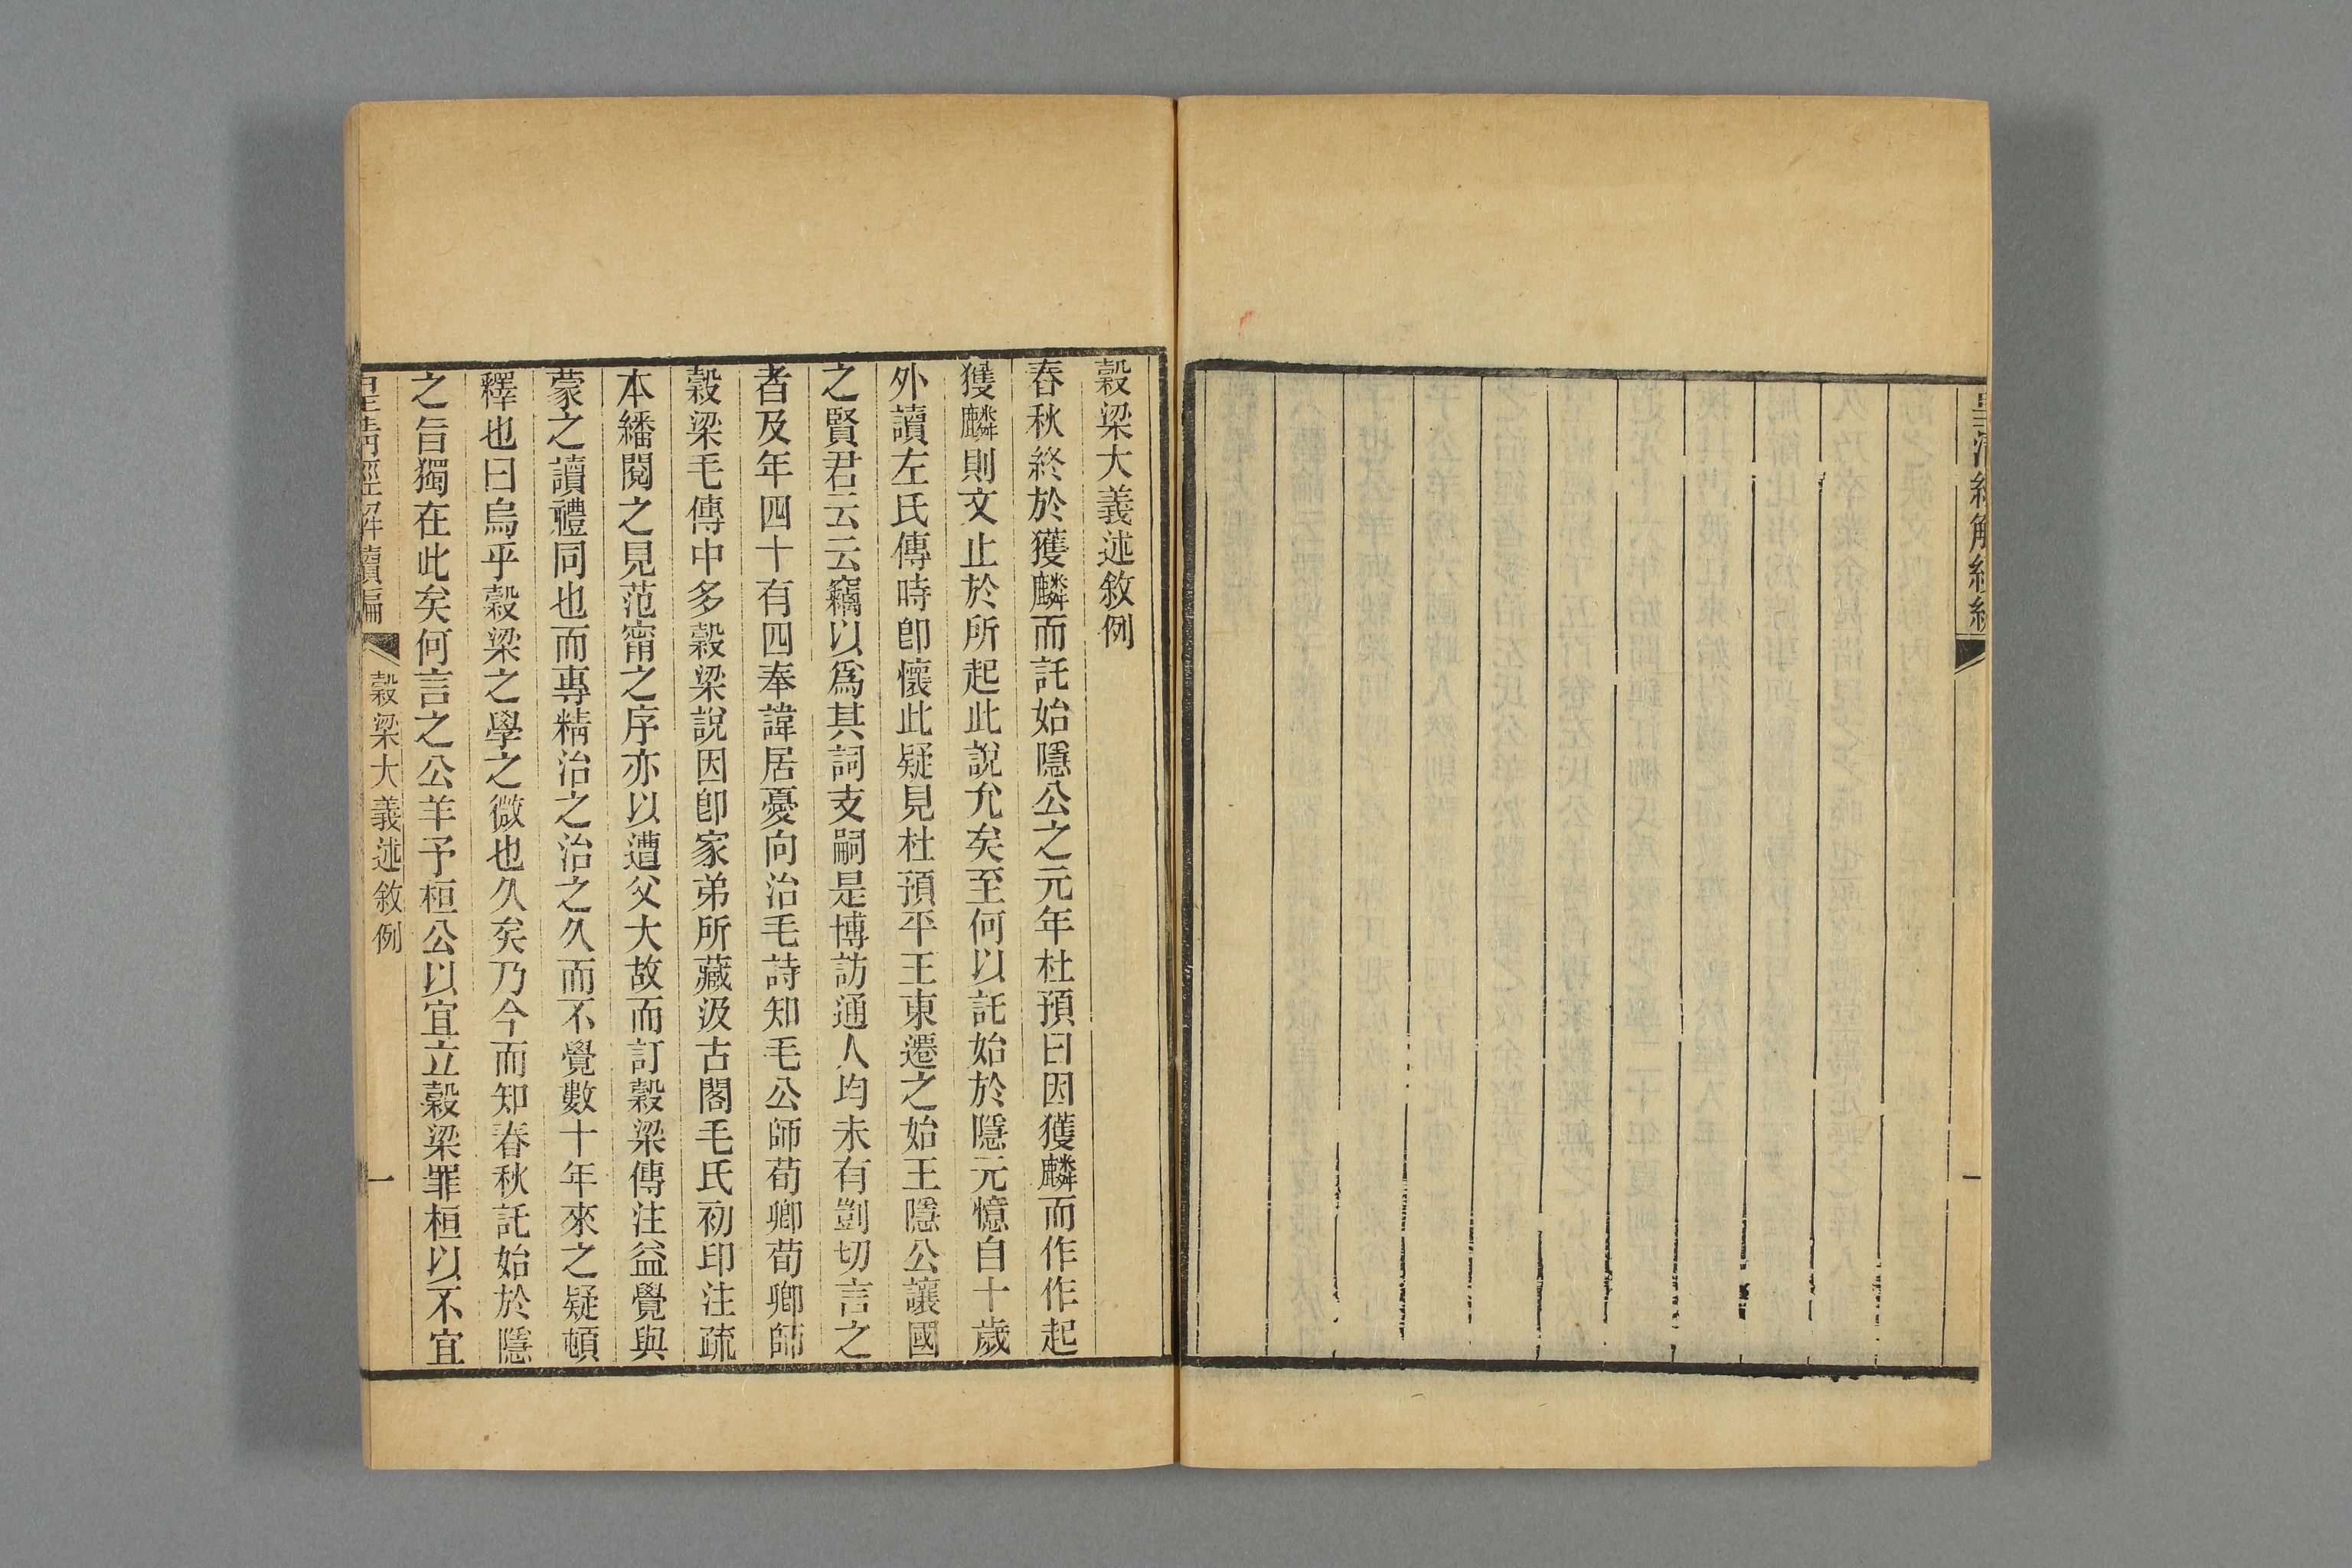 皇清經解續編
一
穀梁大義述敘例
春秋終於獲麟而託始隱公之元年杜預曰因獲麟而作作起
獲麟則文止於所起此說允矣至何以託始於隱元憶自十歲
外讀左氏傳時卽懷此疑見杜預平王東遷之始王隱公讓國
之賢君云云竊以爲其詞支嗣是博訪通人均未有剴切言之
者及年四十有四奉諱居憂向治毛詩知毛公師荀卿荀卿師
穀梁毛傳中多穀梁說因卽家弟所藏汲古閣毛氏初印注疏
本繙閱之見范甯之序亦以遭父大故而訂穀梁傳注益覺與
蒙之讀禮同也而專精治之治之久而不覺數十年來之疑頓
釋也曰烏乎穀梁之學之微也久矣乃今而知春秋託始於隱
之旨獨在此矣何言之公羊予桓公以宜立穀梁罪桓以不宜
皇清經解續編
穀梁大義述敘例
一